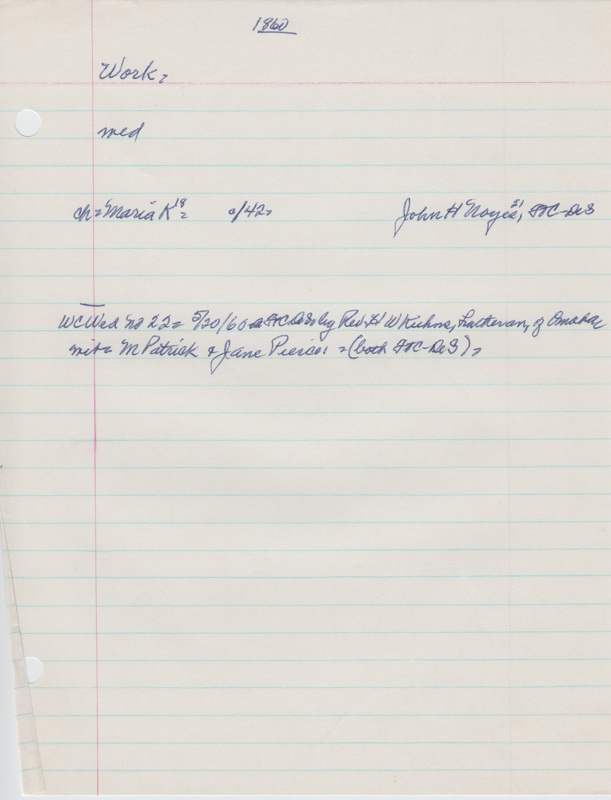 1860
Work=
med
ch= Maria K 18= c/42= John H Noyes 21, FTC-DeS
WC Wed No 22= 5/20/60 FTC DeS by Rev. H W Kuhns, Lutheran, of Omaha,
wit= M Patrick & Jane Pierce: =(both FTC-DeS)=